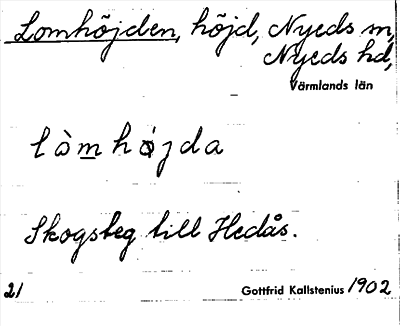 Lomhöjden, höjd, Nyeds sn,
Nyeds hd,
Värmlands län
lòmhöjda
Skogsbeg till Hedås.
21 Gottfrid Kallstenius 1902